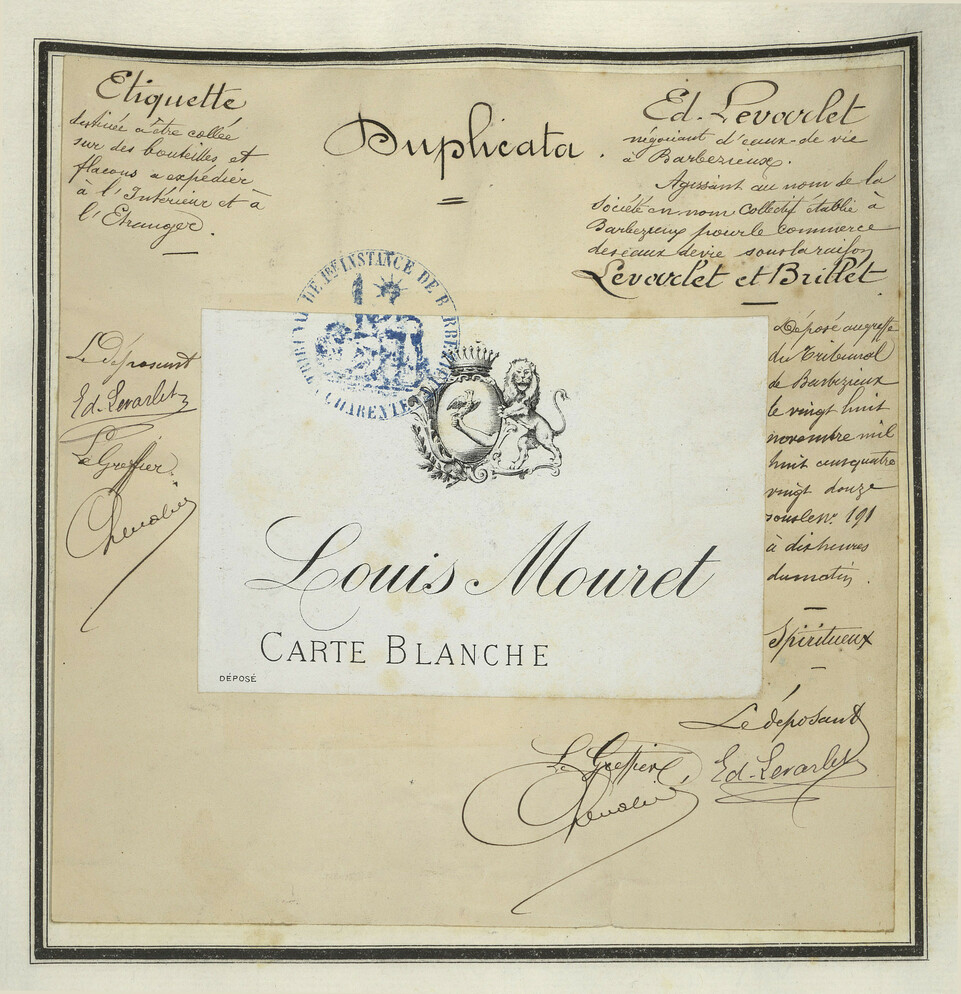 Etiquette
destinée a être collée
sur des bouteilles et
flacons a expédier
à l'Intérieur et à
l'Etranger.
Duplicata.
Ed. Levarlet
négociant d'eaux-de vie
à Barbezieux.
Agissant au nom de la
Société en nom Collectif établie à
Barbezieux pour le Commerce
des eaux de vie sous la raison
Levarlet et Brillet
TRIBUNAL DE 1ère INSTANCE DE BARBEZIEUX
CHARENTE
Le déposant
Ed. Levarlet
Le Greffier
Louis Mouret
CARTE BLANCHE
DÉPOSÉ
Déposé au greffe
du Tribunal
de Barbezieux
le vingt huit
novembre mil
huit cent quatre
vingt douze
sous le n° 191
à dix heures
du matin.
Spiritueux
Le déposant
Ed. Levarlet
Le Greffier